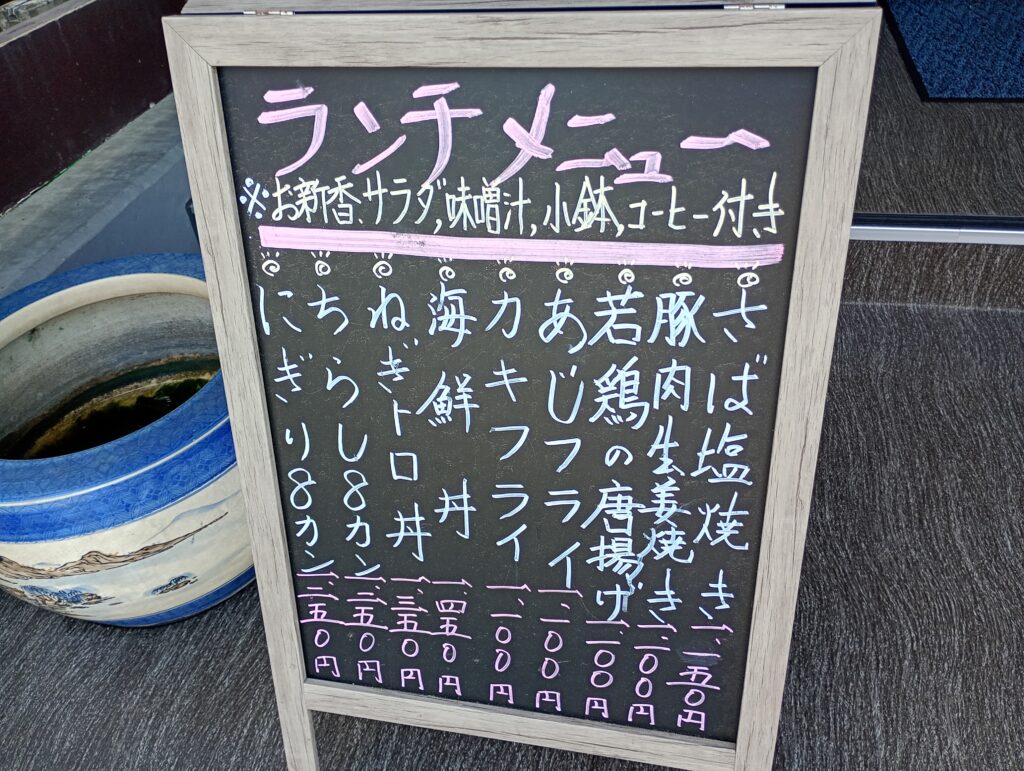 ランチメニュー
※お新香、サラダ,味噌汁,小鉢,コーヒー付き
さば塩焼き 一、一五0円
豚肉生姜焼き 一、一00円
若鶏の唐揚げ 一、一00円
あじフライ 一、一00円
カキフライ 一、一00円
海鮮丼 一、四五0円
ねぎトロ丼 一、三五0円
ちらし8カン 一、二五0円
にぎり8カン 一、二五0円